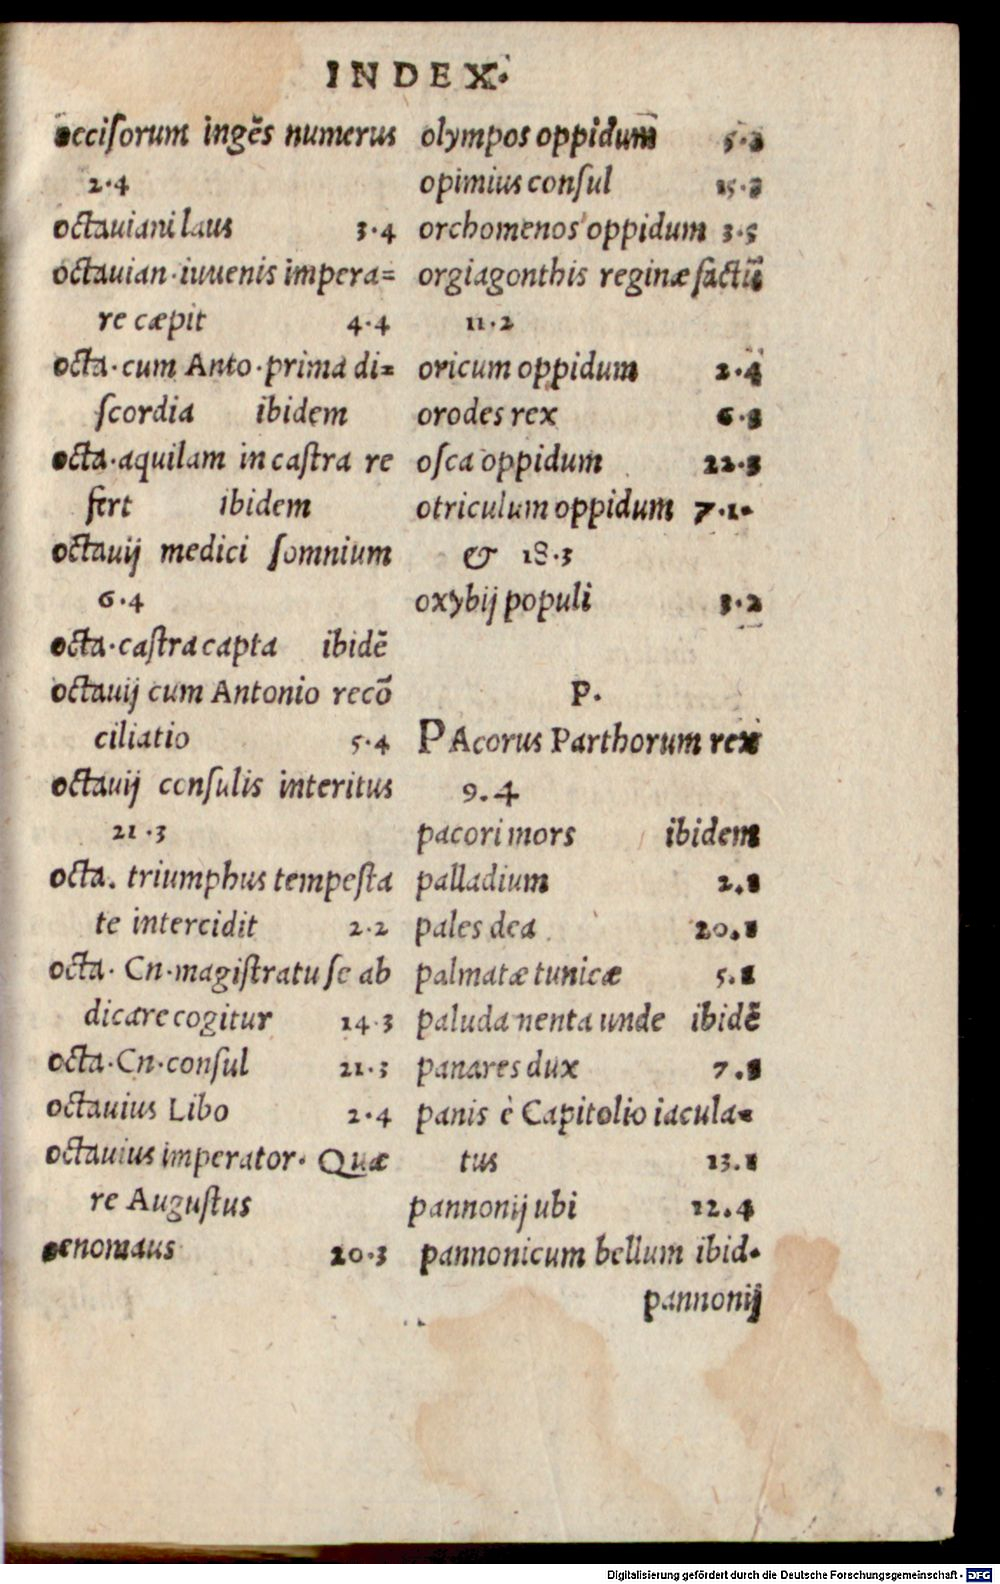 INDEX.
occisorum ingẽs numerus
2·4
octauiani laus 3·4
octauian·iuuenis impera=
re cæpit 4·4
octa·cum Anto·prima di=
scordia ibidem
octa·aquilam in castra re
fert ibidem
octauij medici somnium
6·4
octa·castra capta ibidẽ
octauij cum Antonio recõ
ciliatio 5·4
octauij consulis interitus
21·3
octa. triumphus tempesta
te intercidit 2·2
octa· Cn·magistratu se ab
dicare cogitur 14·3
octa·Cn·consul 21·3
octauius Libo 2·4
octauius imperator· Quæ
re Augustus
oenomaus 20·3
olympos oppidum
opimius consul
orchomenos oppidum 3·5
orgiagonthis reginæ factũ
11·2
oricum oppidum 2·4
orodes rex
osca oppidum 22·3
otriculum oppidum 7·1·
& 18·3
oxybij populi 3·2
P.
PAcorus Parthorum rex
9.4
pacori mors ibidem
palladium 2.1
pales dea 20.1
palmatæ tunicæ 5.1
paludamenta unde ibidẽ
panares dux
panis è Capitolio iacula=
tus 13.1
pannonij ubi 12.4
pannonicum bellum ibid·
pannonij
Digitalisierung gefördert durch die Deutsche Forschungsgemeinschaft - DFG